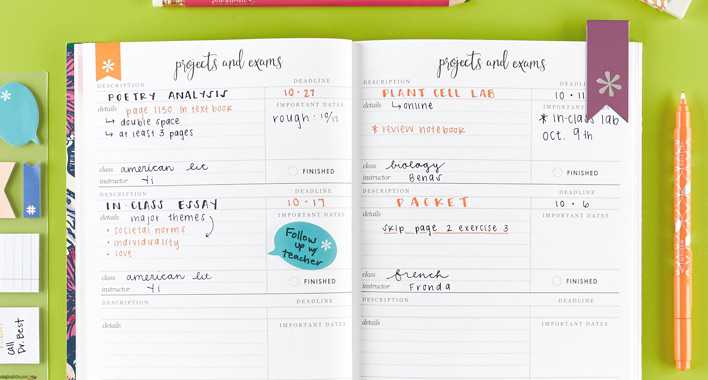 projects and exams
DESCRIPTION DEADLINE
POETRY ANALYSIS 10·27
details page 1150 in textbook IMPORTANT DATES
↳ double space rough:
↳ at least 3 pages
class american lit
instructor Yi FINISHED
DESCRIPTION DEADLINE
IN CLASS ESSAY 10·17
details major themes IMPORTANT DATES
• societal norms
• individuality
• love
Follow
up w/
teacher
class american lit
instructor Yi FINISHED
DESCRIPTION DEADLINE
details IMPORTANT DATES
projects and exams
DESCRIPTION
PLANT CELL LAB 10·11
details ↳ online IMPORTANT
* review notebook
* in-class lab
Oct. 9th
class biology
instructor Benas FINISHED
DESCRIPTION DEADLINE
PACKET 10·6
details IMPORTANT DATES
skip page 2 exercise 3
class french
instructor Fronda FINISHED
DESCRIPTION DEADLINE
details IMPORTANT DATES
call
Dr. Best